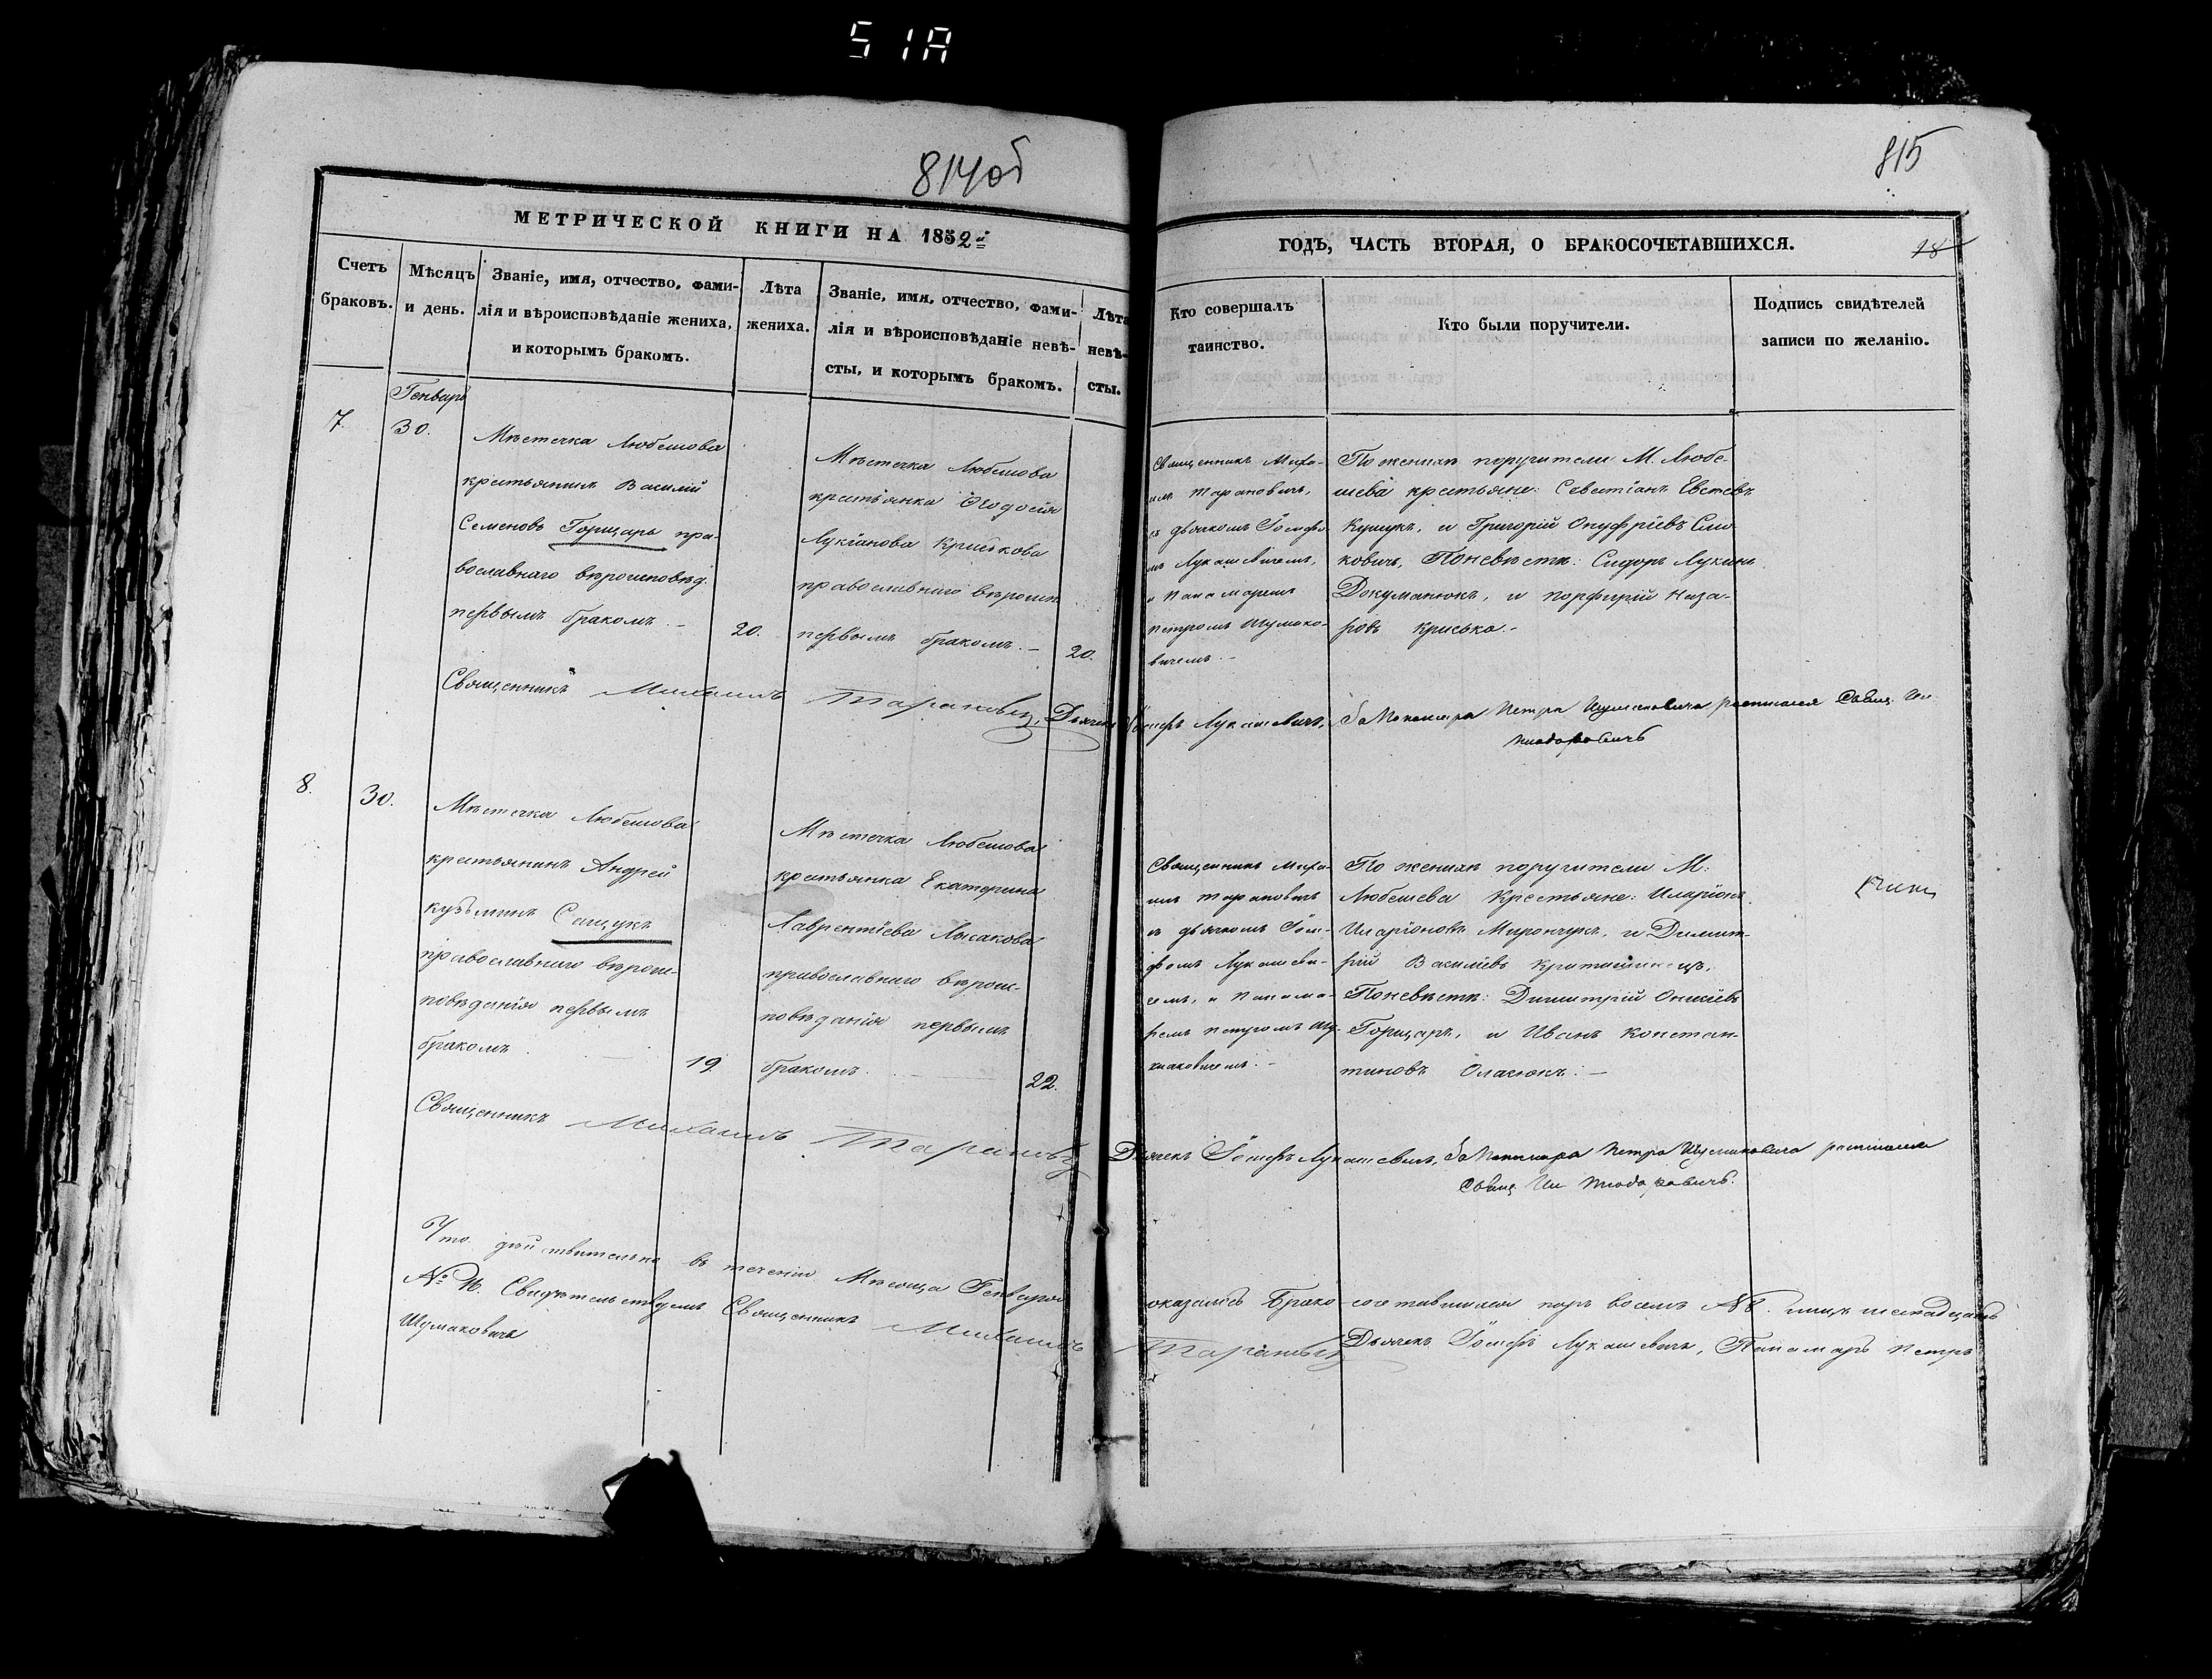 51A
814об
815
МЕТРИЧЕСКОЙ КНИГИ НА 1852й
ГОДЪ, ЧАСТЬ ВТОРАЯ, О БРАКОСОЧЕТАВШИХСЯ.
18
Счетъ
браковъ.
Мѣсяцъ
и день.
Званіе, имя, отчество, фами-
лія и вѣроисповѣданіе жениха,
и которымъ бракомъ.
Лѣта
жениха.
Званіе, имя, отчество, фами-
лія и вѣроисповѣданіе невѣ-
сты, и которымъ бракомъ.
Лѣта
невѣ-
сты.
Кто совершалъ
таинство.
Кто были поручители.
Подпись свидѣтелей
записи по желанію.
Генварь
7.
30.
Мѣстечка Любешова
крестьянинъ Василій
Семеновъ Горщаръ пра-
вославнаго вѣроисповѣд.
первымъ бракомъ. –
20.
Мѣстечка Любешова
крестьянка Ѳеодосія
Лукіанова Криськова
православнаго вѣроисп
первымъ бракомъ. –
20.
Священникъ Миха-
илъ Тарановичъ,
съ дьячкомъ Іосифо-
мъ Лукашевичемъ,
и Пономаремъ
Петромъ Шумако-
вичемъ. –
По женихѣ поручители М. Любе-
шева крестьяне: Севастіанъ Евстевъ
Кущукъ, и Григорій Онуфріевъ Сию-
ковичъ, Поневѣстѣ: Сидоръ Лукинъ
Докуманюкъ, и Порфирій Наза-
ровъ Криська. –
Священникъ Михаилъ Тарановичъ, Дьячекъ Іосифъ Лукашевичъ, За Пономаря Петра Шумаковича росписался Свящ.
8.
30.
Мѣстечка Любешова
крестьянинъ Андрей
Кузьминъ Сащукъ
православнаго вѣроис-
повѣданія первымъ
бракомъ. –
19
Мѣстечка Любешова
крестьянка Екатерина
Лаврентіева Лысакова
православнаго вѣроис-
повѣданія первымъ
бракомъ. –
22.
Священникъ Миха-
илъ Тарановичъ
съ дьячкомъ Іоси-
фомъ Лукашеви-
чемъ, и Понома-
ремъ Петромъ Шу-
маковичемъ. –
По женихѣ поручители М:
Любешева Крестьяне: Иларіонъ
Иларіоновъ Мирончукъ, и Димит-
рій Василіевъ
Поневѣстѣ: Димитрій
Горщаръ, и Иванъ Констан-
тиновъ Оласюкъ. –
Священникъ Михаилъ Тарановичъ Дьячекъ Іосифъ Лукашевичъ, За Пономаря Петра Шумаковича росписался
Свящ
Что дѣйствительно въ теченіи Мѣсяца Генваря оказалось Бракосочетавшихся паръ восемъ № 8. лицъ шестнадцать
№ 16. Свидѣтельствуемъ Священникъ Михаилъ Тарановичъ Дьячекъ Іосифъ Лукашевичъ, Пономарь Петръ
Шумаковичъ